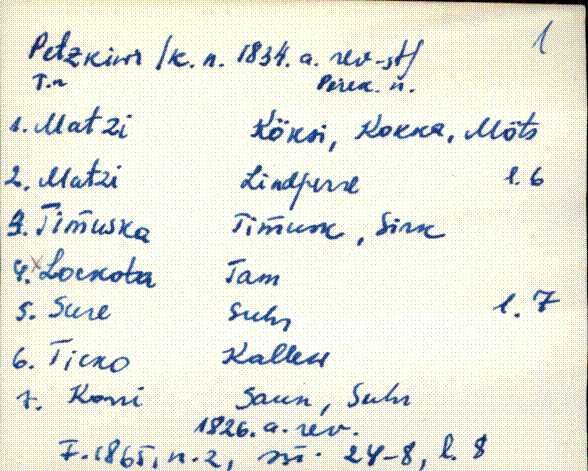 1
Petzkiwi /k. n. 1834. a. rev-st/
T.n Perek. n.
1. Matzi Köksi, Kokka, Möts
2. Matzi Lindperre l. 6
3. Timuska Timusk, Sirk
4. Lockota Tam
5. Sure Suhr l. 7
6. Ticko Kalless
7. Konni Saun, Suhr
1826. a. rev.
F. 1865, n. 2, 24-8, l. 8